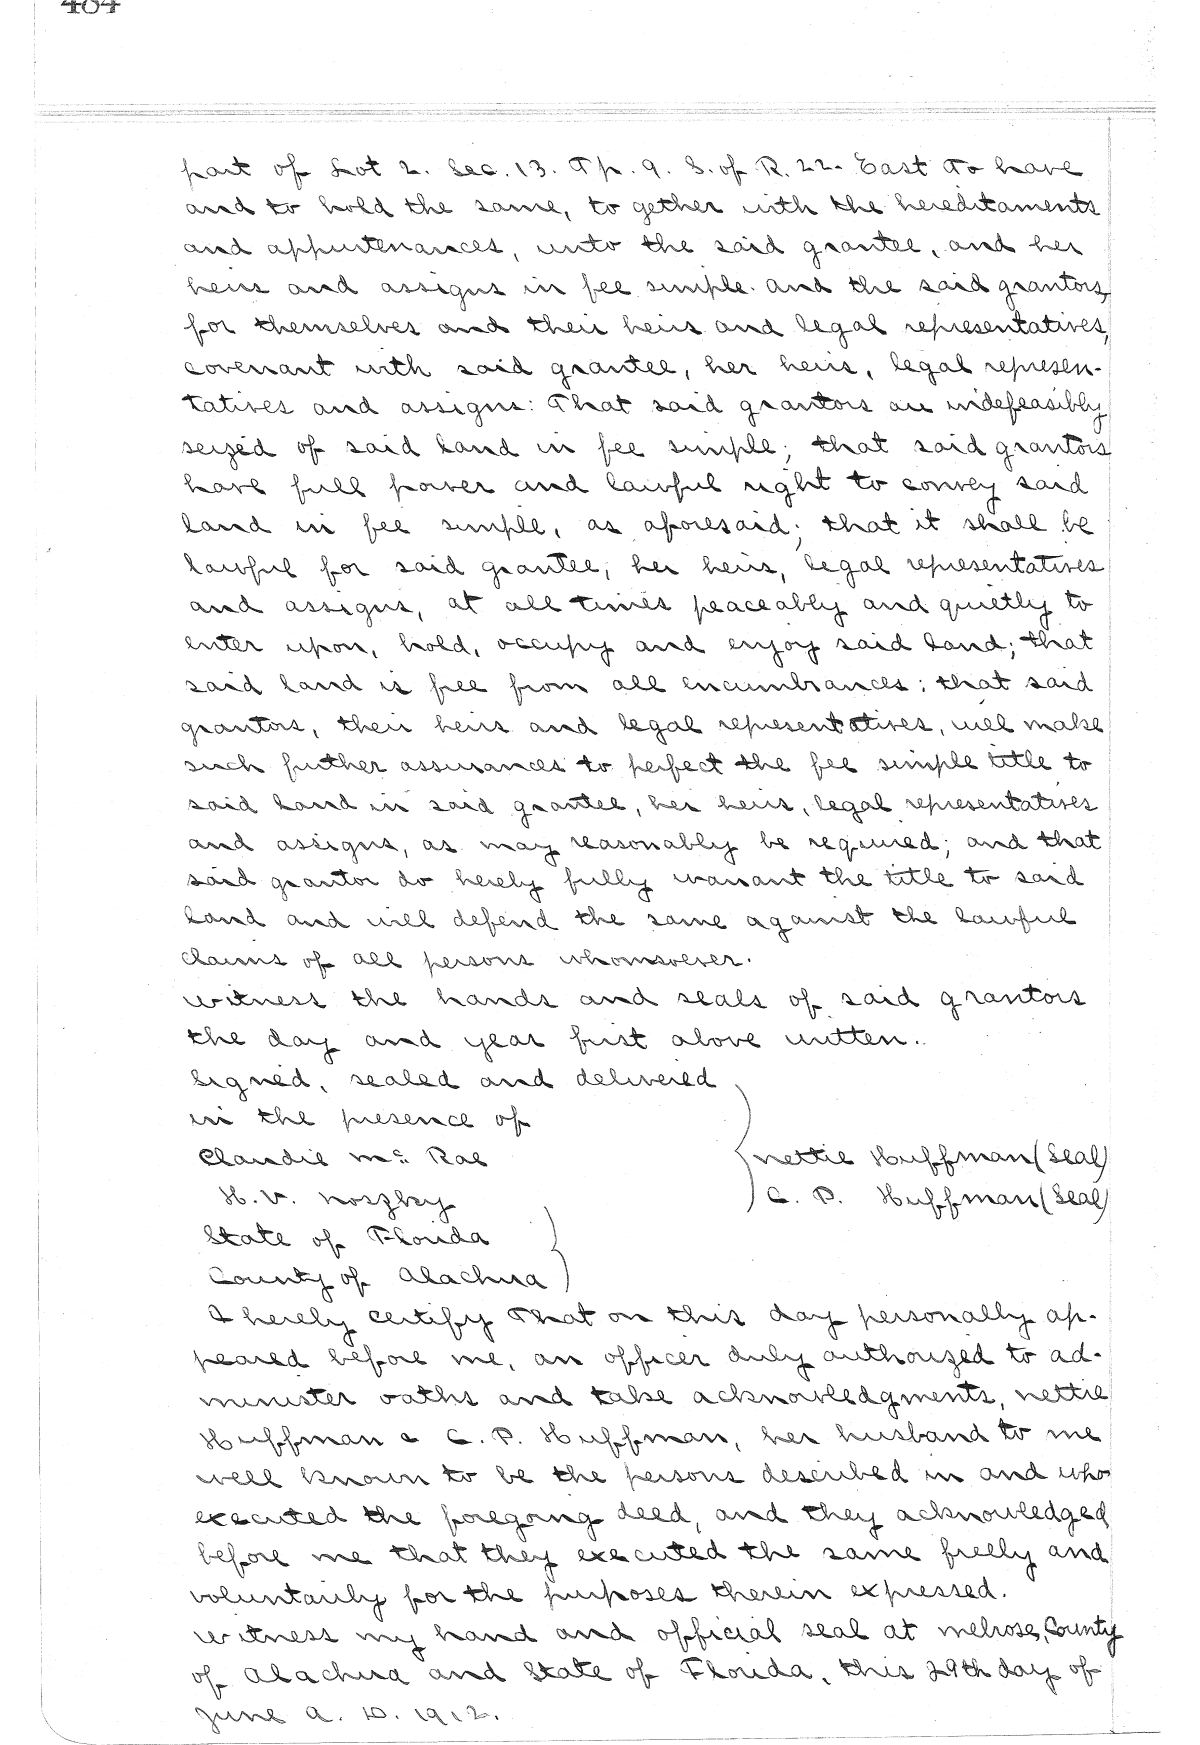 484
part of Lot 2. Sec. 13. Tp. 9. S. of R. 22. East To have
and to hold the same, to gether with the hereditaments
and appurtenances, unto the said grantee, and her
heirs and assigns in fee simple. and the said grantors,
for themselves and their heirs and legal representatives,
covenant with said grantee, her heirs, legal represen-
tatives and assigns: That said grantors are indefeasibly
seized of said land in fee simple; that said grantors
have full power and lawful right to convey said
land in fee simple, as aforesaid; that it shall be
lawful for said grantee, her heirs, legal representatives
and assigns, at all times peaceably and quietly to
enter upon, hold, occupy and enjoy said land; that
said land is free from all encumbrances; that said
grantors, their heirs and legal representatives, will make
such further assurances to perfect the fee simple title to
said land in said grantee, her heirs, legal representatives
and assigns, as may reasonably be required; and that
said grantor do hereby fully warrant the title to said
land and will defend the same against the lawful
claims of all persons whomsoever.
Witness the hands and seals of said grantors
the day and year first above written.
Signed, sealed and delivered
in the presence of
Claudie Mc. Rae Nettie Huffman (Seal)
H. V. C. P. Huffman (Seal)
State of Florida
County of Alachua
I hereby certify That on this day personally ap-
peared before me, an officer duly authorized to ad-
minister oaths and take acknowledgments, Nettie
Huffman & C. P. Huffman, her husband to me
well known to be the persons described in and who
executed the foregoing deed, and they acknowledged
before me that they executed the same freely and
voluntarily for the purposes therein expressed.
Witness my hand and official seal at Melrose, County
of Alachua and State of Florida, this 29th day of
June A. D. 1912.